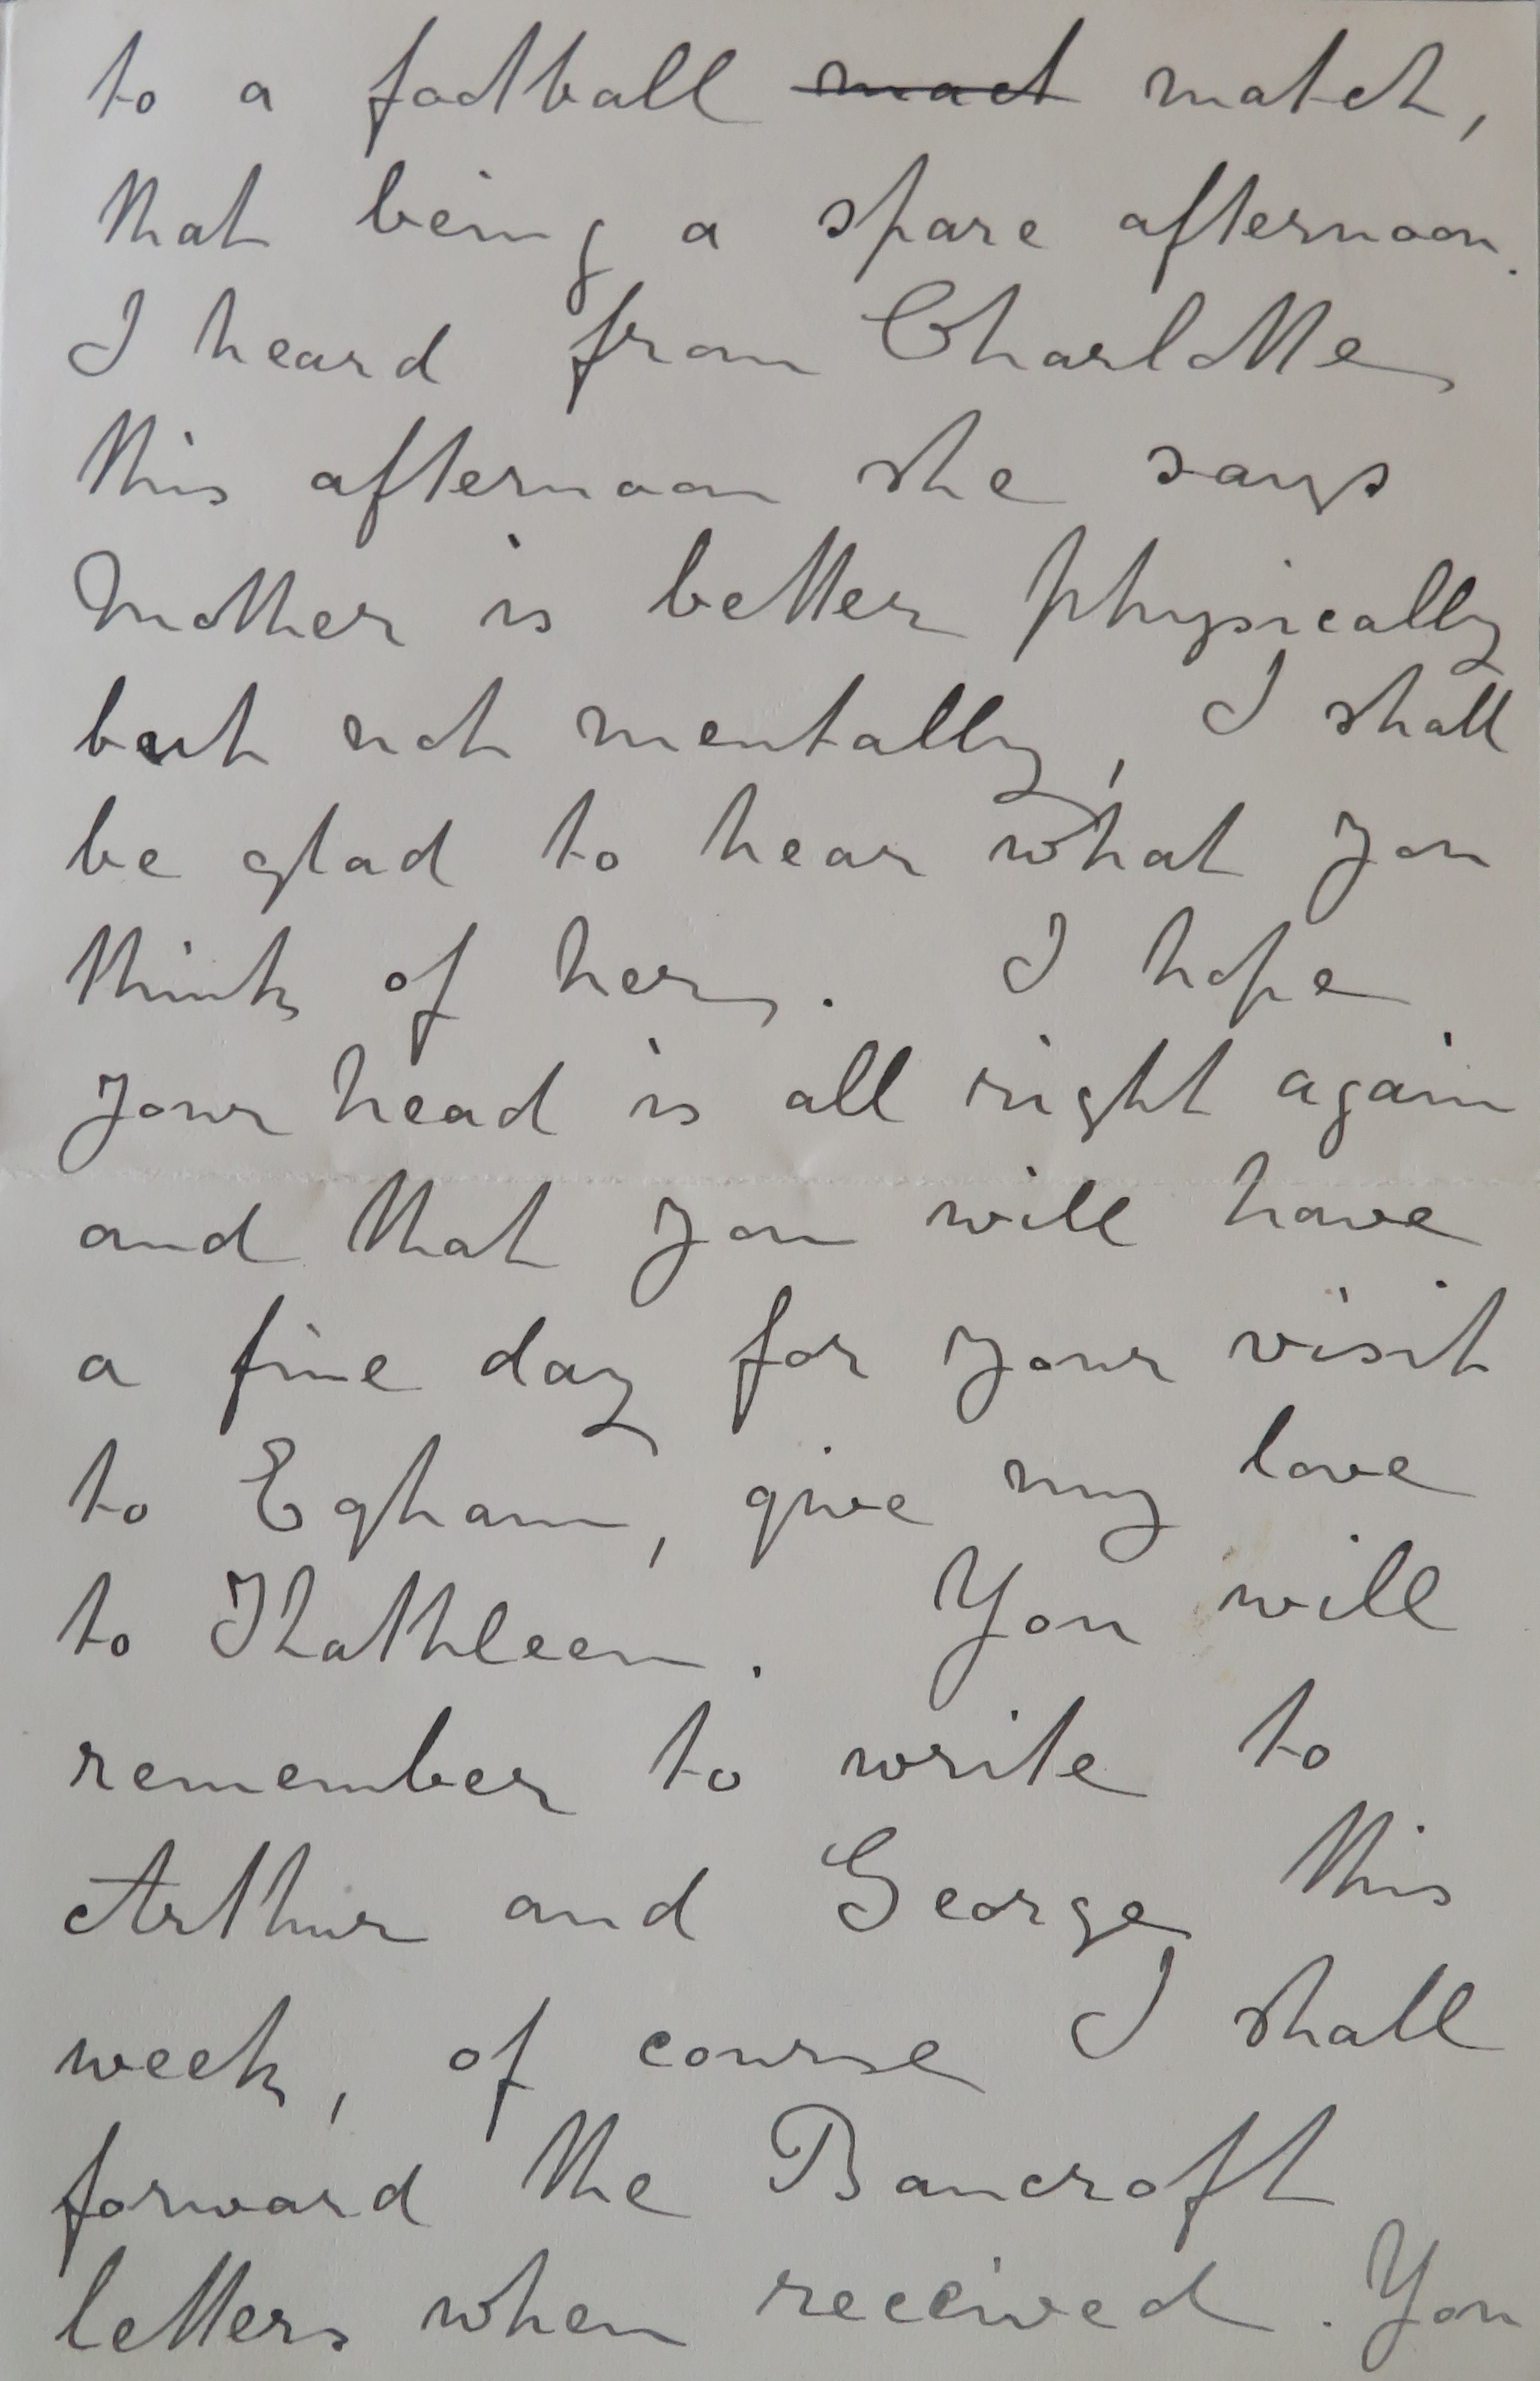 to a football mact match,
that being a spare afternoon.
I heard from Charlotte
this afternoon she says
Mother is better physically
but not mentally, I shall
be glad to hear what you
think of her. I hope
your head is all right again
and that you will have
a fine day for your visit
to Egham, give my love
to Kathleen. You will
remember to write to
Arthur and George this
week, of course I shall
forward the Bancroft
letters when received. You